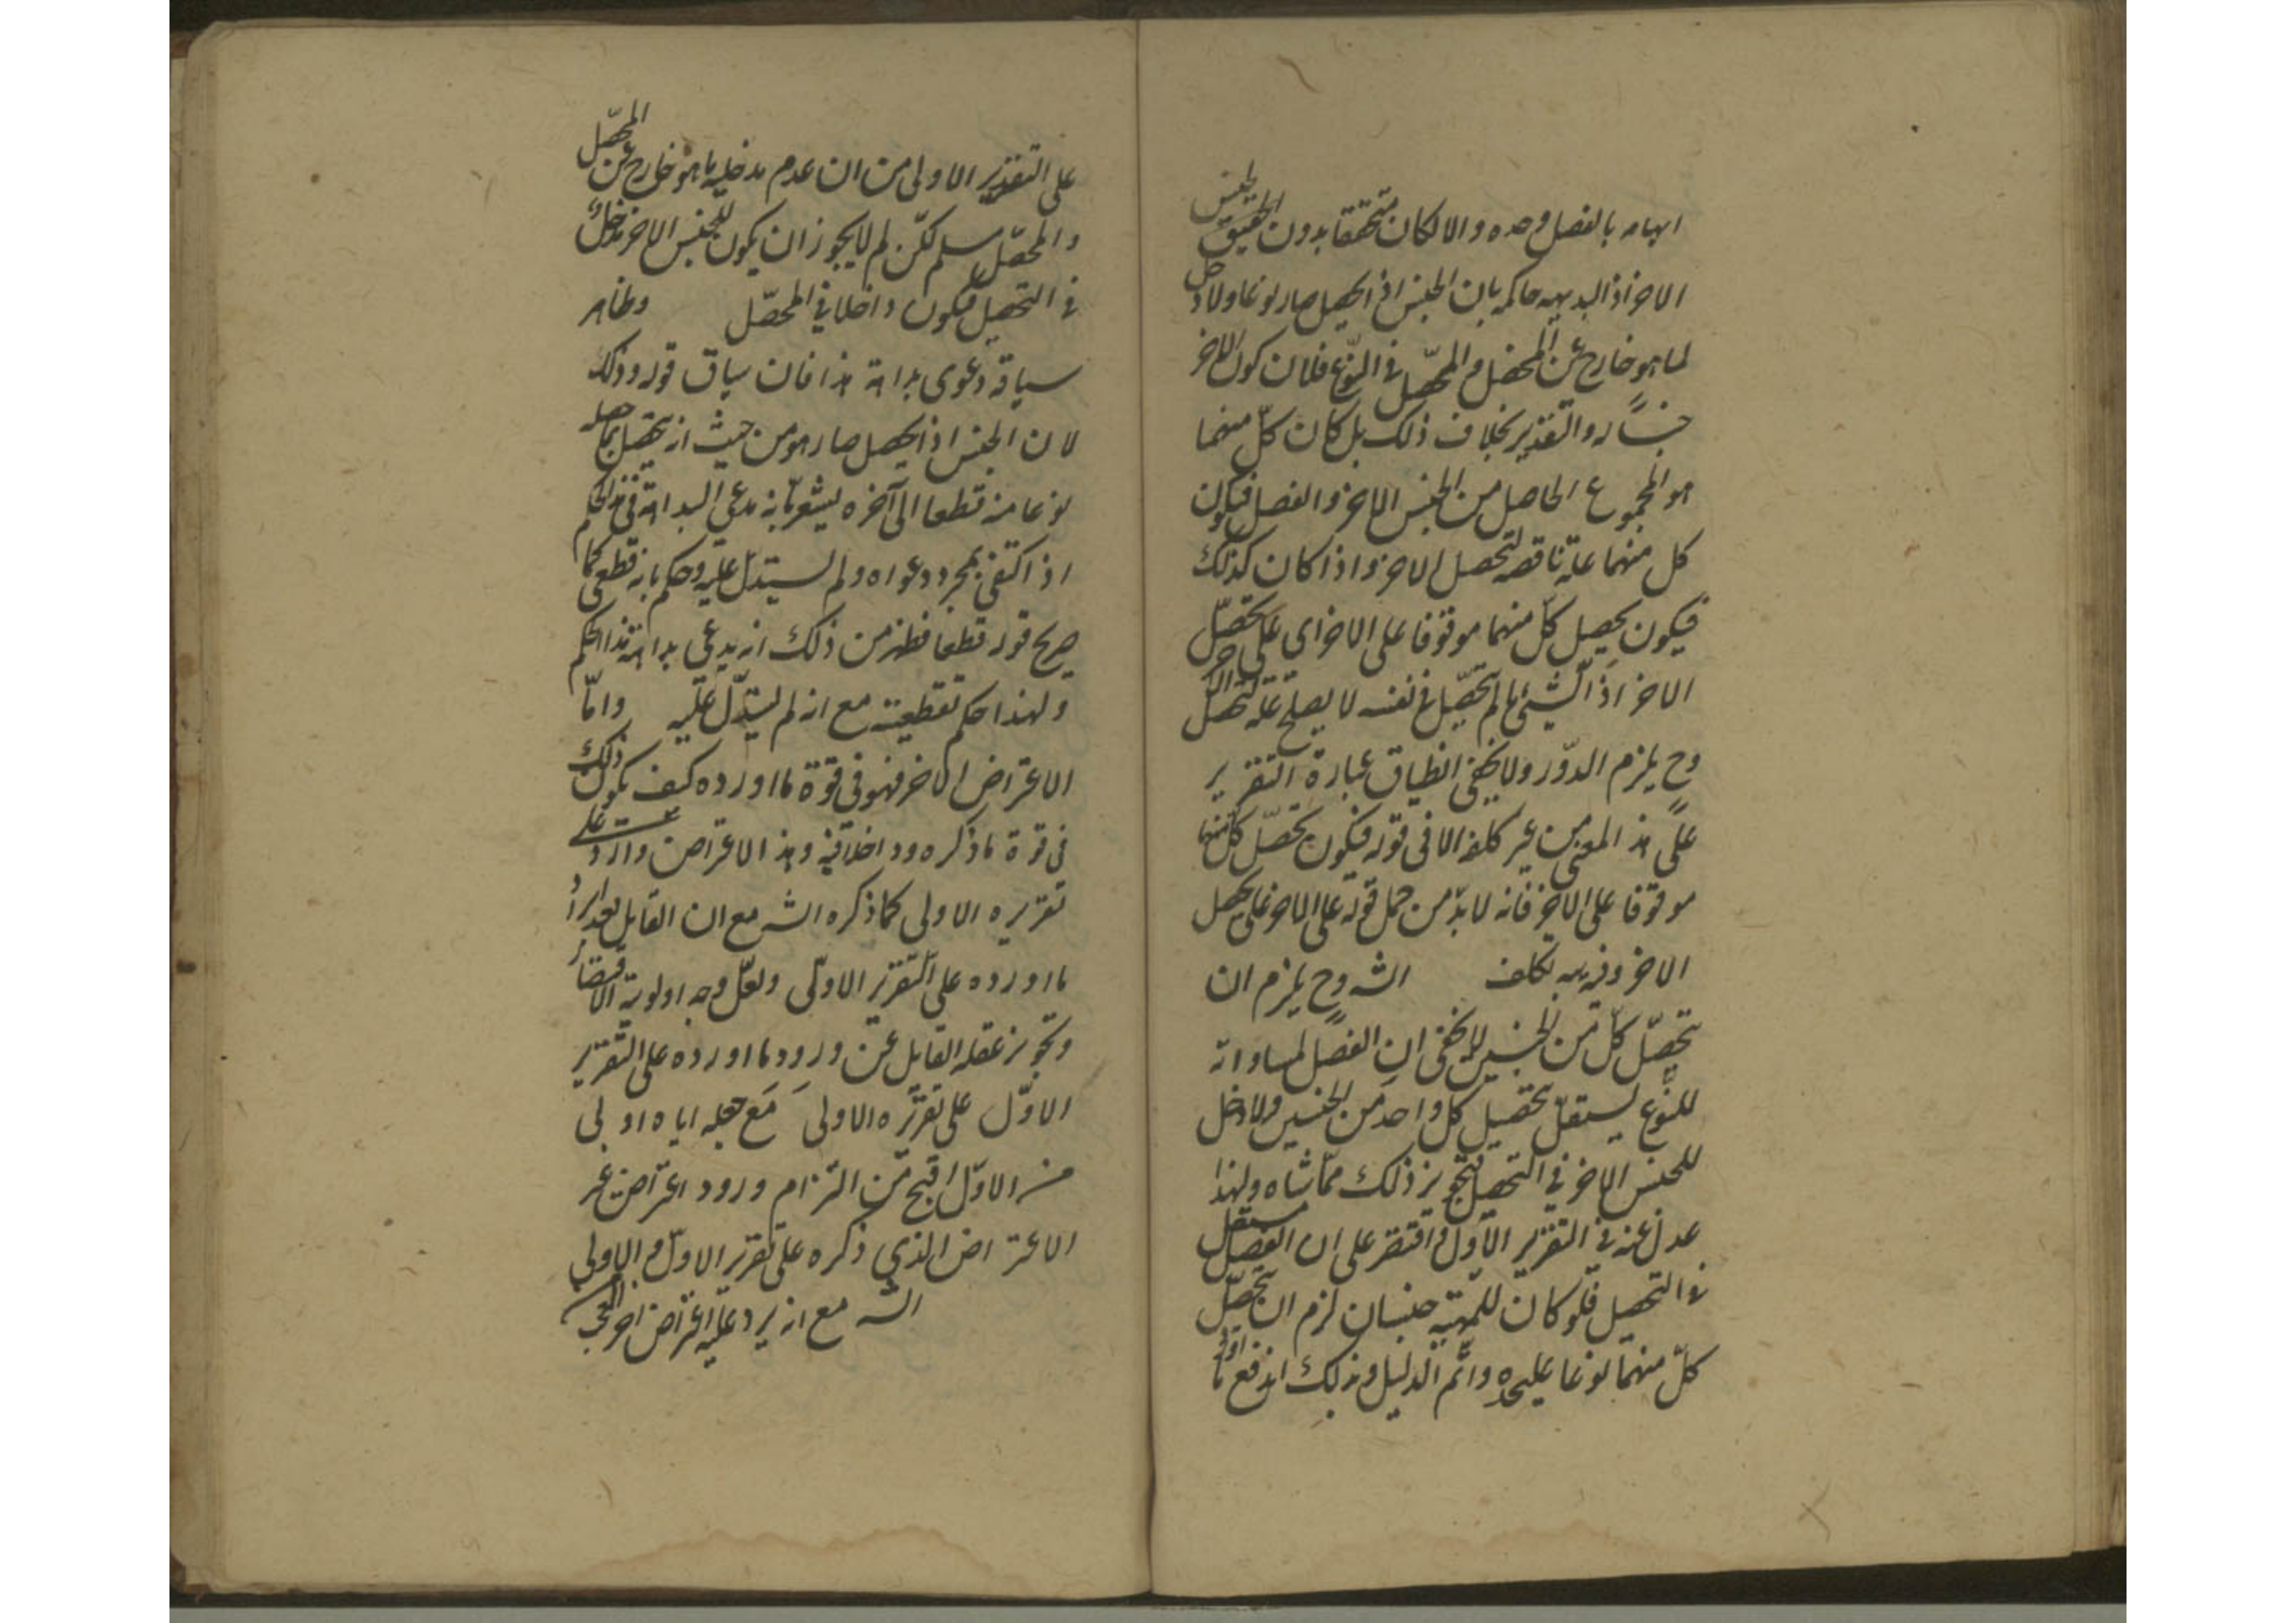 ابهامه بالفصل وحده والا لكان متحققا بدون الجنس
الاخر اذ البديهيه حاكمه بان الجنس اذ الحصل صار نوعا ولا دخل
لما هو خارج عن المحصل والمحصل فى النوع فلان كون الاخر
جنسا له والتقدير بخلاف ذلك بل كان كلّ منهما
هو المجموع الحاصل من الجنس الاخر والفصل فيكون
كل منهما علة ناقصه لتحصل الاخر واذا كان كذلك
فيكون تحصيل كلّ منهما موقوفا على الاخر اى على تحصّل
الاخر اذ الشئ ما لم يتحصّل فى نفسه لا يصلح علة لتحصل الاخر
وح يلزم الدّور ولا يخفى انطباق عبارة التقرير
على هذا المعنى من غير كلفه الا فى قوله فيكون تحصّل كل منهما
موقوفا على الاخر فانه لا بدّ من حمل قوله على الاخر على تحصل
الاخر وفيه تكلف الشه وح يلزم ان
تحصّل كلّ من الجنسين لا يخفى ان الفصل لمساواته
للنّوع يستقلّ بتحصيل كل واحد من الجنسين ولا دخل
للجنس الاخر فى التحصيل فتجويز ذلك مماشاه ولهذا
عدل عنه فى التقرير الاول واقتصر على ان الفصل مستقل
فى التحصيل فلو كان للمهيّة جنسان لزم ان يتحصّل
كلّ منهما نوعا عليحده واتم الدليل وبذلك اندفع ما اورد
على التقرير الاولى من ان عدم مدخلية ما هو خارج عن المحصّل
والمحصّل مسلم لكن لم لا يجوز ان يكون للجنس الاخر مدخل
فى التحصيل فيكون داخلا فى المحصّل وظاهر
سياقه دعوى بداهة هذا فان سياق قوله وذلك
لان الجنس اذ الحصل صار هو من حيث انه تحصل بما حصله
نوعا منه قطعا الى آخره يشعر بانه مدعى البداهة فى هذا الحكم
اذ اكتفى بمجرد دعواه ولم يستدلّ عليه وحكم بانه قطعى كما
صرح قوله قطعا فظهر من ذلك انه يدعى بداهة هذا الحكم
ولهذا حكم بقطعيته مع انه لم يستدلّ عليه وامّا
الاعتراض الاخر فهو فى قوة ما اورده كيف يكون ذلك
فى قوة ما ذكره وهذا الاعتراض وارد على
تقريره الاولى كما ذكره الشه مع ان القايل بعد ايراد
ما اورده على التقرير الاولى ولعلّ وجه اولوية الاقتصار
وتجويز غفلة القايل عن ورود ما اورده على التقرير
الاوّل على تقريره الاولى مع جعله اياه اولى
من الاوّل اقبح من التزام ورود اعتراض غير
الاعتراض الذى ذكره على تقرير الاول والاولى
الشه مع انه يرد عليه اعتراض اخر